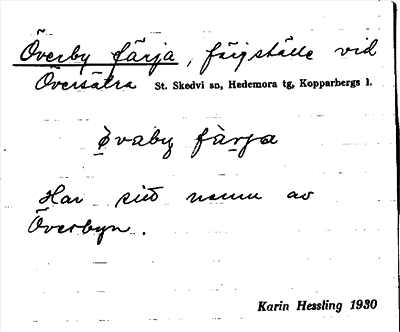 Överby färja, färjställe vid
Översätra St. Skedvi sn, Hedemora tg, Kopparbergs l.
övaby färja
Har sitt namn av
Överbyn.
Karin Hessling 1930